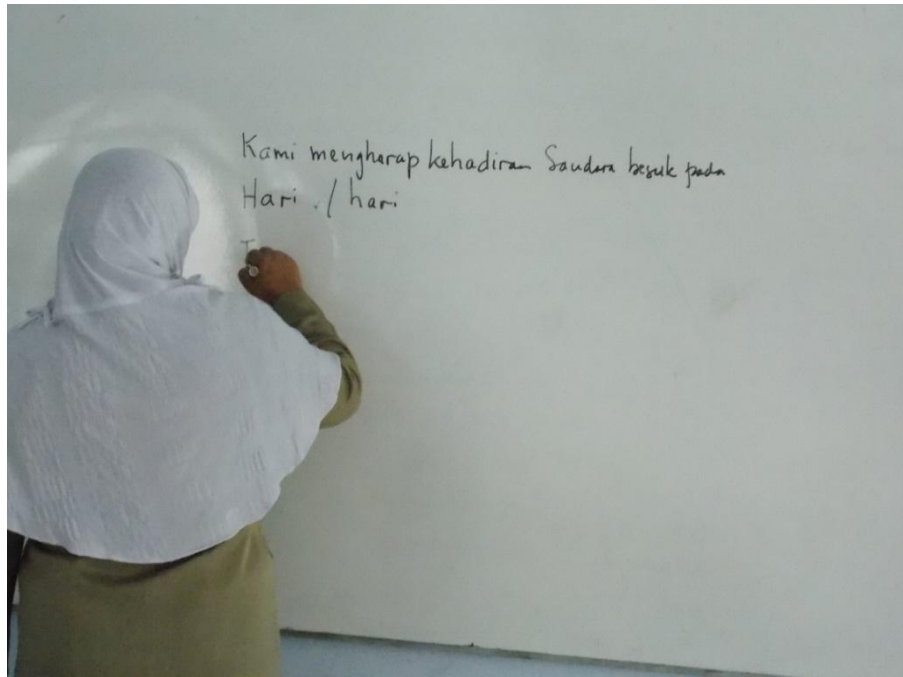 Kami mengharap kehadiran Saudara besuk pada
Hari . / hari
T